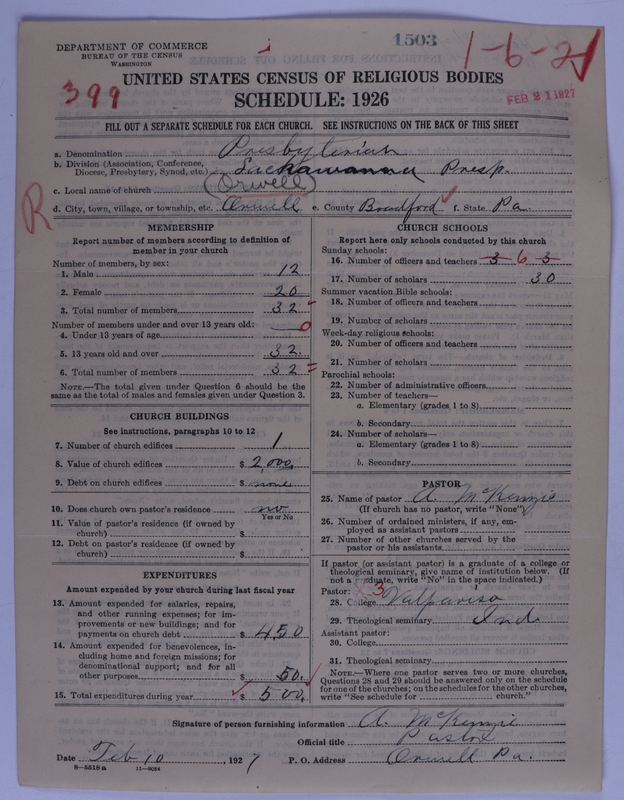 DEPARTMENT OF COMMERCE
BUREAU OF THE CENSUS
WASHINGTON
1503
1-6-21
399
UNITED STATES CENSUS OF RELIGIOUS BODIES
SCHEDULE: 1926
FEB 21 1927
FILL OUT A SEPARATE SCHEDULE FOR EACH CHURCH. SEE INSTRUCTIONS ON THE BACK OF THIS SHEET
a. Denomination Presbyterian
b. Division (Association, Conference, Diocese, Presbytery, Synod, etc.) Lackawanna Presp.
c. Local name of church Orwell
R
d. City, town, village, or township, etc. Orwell e. County Bradford f. State Pa.
MEMBERSHIP
Report number of members according to definition of member in your church
Number of members, by sex:
1. Male 12
2. Female 20
3. Total number of members 32
Number of members under and over 13 years old:
4. Under 13 years of age 0
5. 13 years old and over 32.
6. Total number of members 32 =
NOTE.—The total given under Question 6 should be the same as the total of males and females given under Question 3.
CHURCH BUILDINGS
See instructions, paragraphs 10 to 12
7. Number of church edifices 1
8. Value of church edifices $ 2,000.
9. Debt on church edifices $ none
10. Does church own pastor's residence no
Yes or No
11. Value of pastor's residence (if owned by church) $
12. Debt on pastor's residence (if owned by church) $
EXPENDITURES
Amount expended by your church during last fiscal year
13. Amount expended for salaries, repairs, and other running expenses; for improvements or new buildings; and for payments on church debt $ 450
14. Amount expended for benevolences, including home and foreign missions; for denominational support; and for all other purposes $ 50.
15. Total expenditures during year $ 500.
CHURCH SCHOOLS
Report here only schools conducted by this church
Sunday schools:
16. Number of officers and teachers 3 6 3
17. Number of scholars 30
Summer vacation Bible schools:
18. Number of officers and teachers
19. Number of scholars
Week-day religious schools:
20. Number of officers and teachers
21. Number of scholars
Parochial schools:
22. Number of administrative officers
23. Number of teachers—
a. Elementary (grades 1 to 8)
b. Secondary
24. Number of scholars—
a. Elementary (grades 1 to 8)
b. Secondary
PASTOR
25. Name of pastor A. McKenzie
(If church has no pastor, write "None")
26. Number of ordained ministers, if any, employed as assistant pastors
27. Number of other churches served by the pastor or his assistants
If pastor (or assistant pastor) is a graduate of a college or theological seminary, give name of institution below. (If not a graduate, write "No" in the space indicated.)
Pastor: 3
28. College Valpariso
29. Theological seminary Ind
Assistant pastor:
30. College
31. Theological seminary
NOTE.—Where one pastor serves two or more churches, Questions 28 and 29 should be answered only on the schedule for one of the churches; on the schedules for the other churches, write "See schedule for church."
Signature of person furnishing information A. McKenzie
Official title Pastor
Date Feb 10, 1927 P. O. Address Orwell Pa.
8—5518a 11—9024